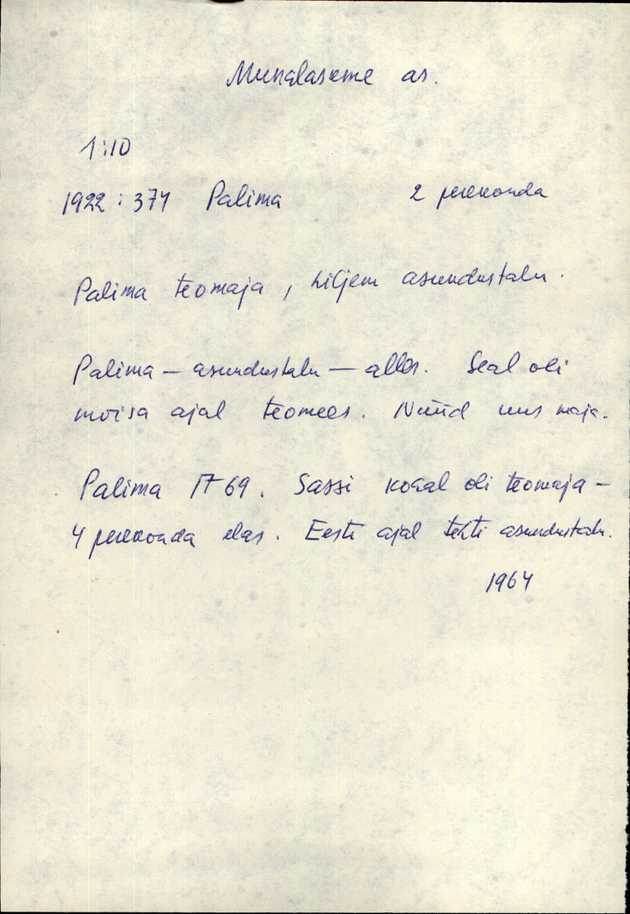 Munalaskme as.
1:10
1922 : 371 Palima 2 perekonda
Palima teomaja, hiljem asundustalu.
Palima — asundustalu — alles. Seal oli
mõisa ajal teomees. Nüüd uus maja.
Palima 69. Sassi kohal oli teomaja –
4 perekonda elas. Eesti ajal tehti asundustalu.
1964